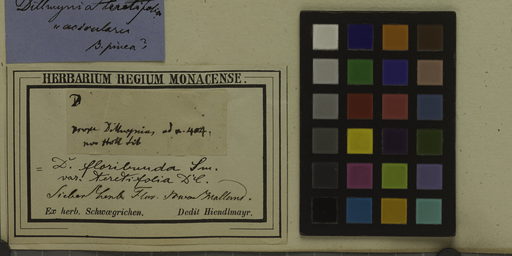 Dillwynia teretifolia
acicularis
B. pinea?
HERBARIUM REGIUM MONACENSE.
D
Dillwynia, ad n. 404,
= D. floribunda Sm.
var. teretifolia DC.
Sieber Herb. Flor. Novae Holland.
Ex herb. Schwægrichen. Dedit Hiendlmayr.